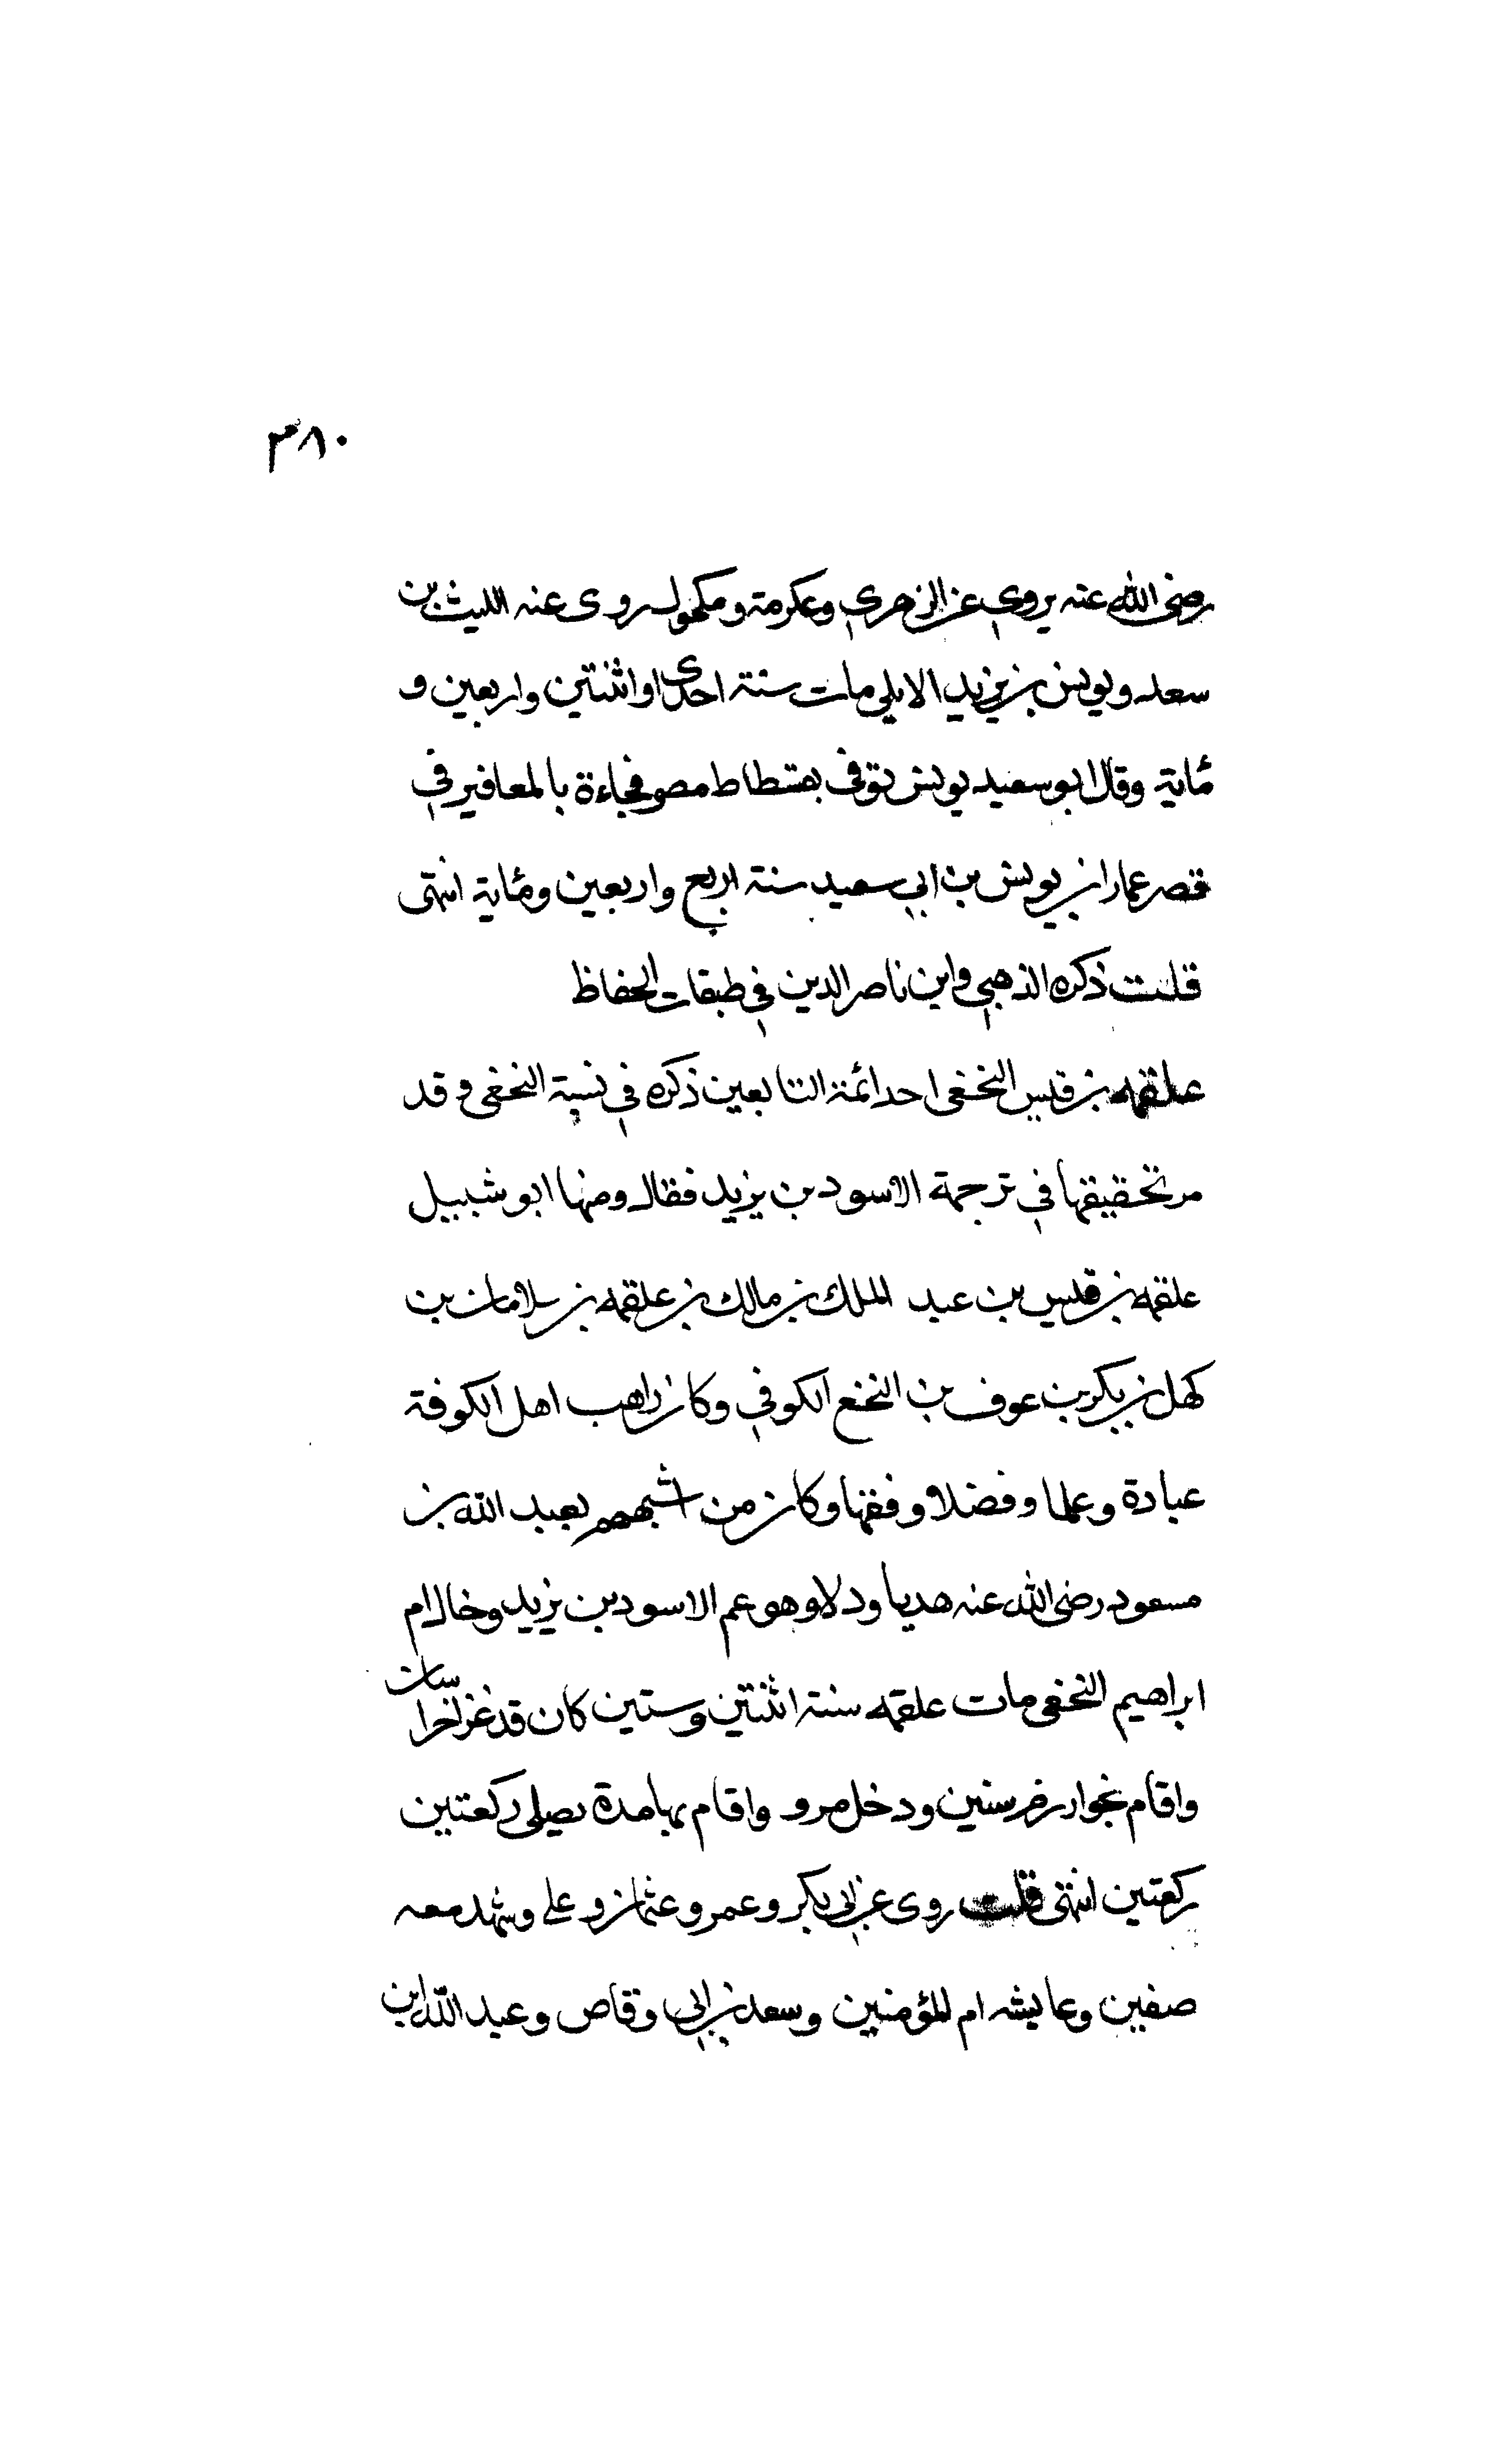 ٣٨٠
رضى الله عنه يروي عن الزهري وعكرمة ومكحول روى عنه الليث بن
سعد ويونس بن يزيد الايلي مات سنة احدى او اثنتين واربعين و
مائة وقال ابو سعيد يونس توفى بفسطاط مصر فجاءة بالمعافير في
قصر عمار ابن يونس بن ابي سعيد سنة اربع واربعين ومائة انتهى
قلت ذكره الذهبي وابن ناصر الدين في طبقات الحفاظ
علقمه بن قيس النخعى احد ائمة التابعين ذكره في نسبة النخعى وقد
مر تحقيقها في ترجمة الاسود بن يزيد فقال ومنها ابو شبيل
علقمه بن قيس بن عبد الملك بن مالك بن علقمه بن سلامان بن
كهل بن بكر بن عوف بن النخع الكوفي وكان راهب اهل الكوفة
عبادة وعلما وفضلا وفقها وكان من اشبههم بعبد الله بن
مسعود رضى الله عنه هديا ودلا وهو عم الاسود بن يزيد وخال ام
ابراهيم النخعى مات علقمه سنة اثنتين وستين كان قد غزا خراسان
واقام بخوارزم سنين ودخل مرو واقام بها مدة يصلى ركعتين
ركعتين انتهى قلت روى عن ابي بكر وعمر وعثمان وعلى وشهد معه
صفين وعايشه ام المؤمنين وسعد بن ابي وقاص وعبد الله بن